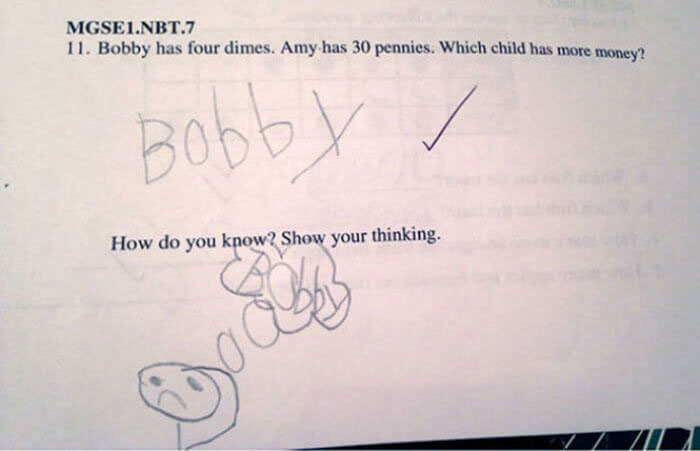 MGSE1.NBT.7
11. Bobby has four dimes. Amy has 30 pennies. Which child has more money?
Bobby
How do you know? Show your thinking.
Bobby